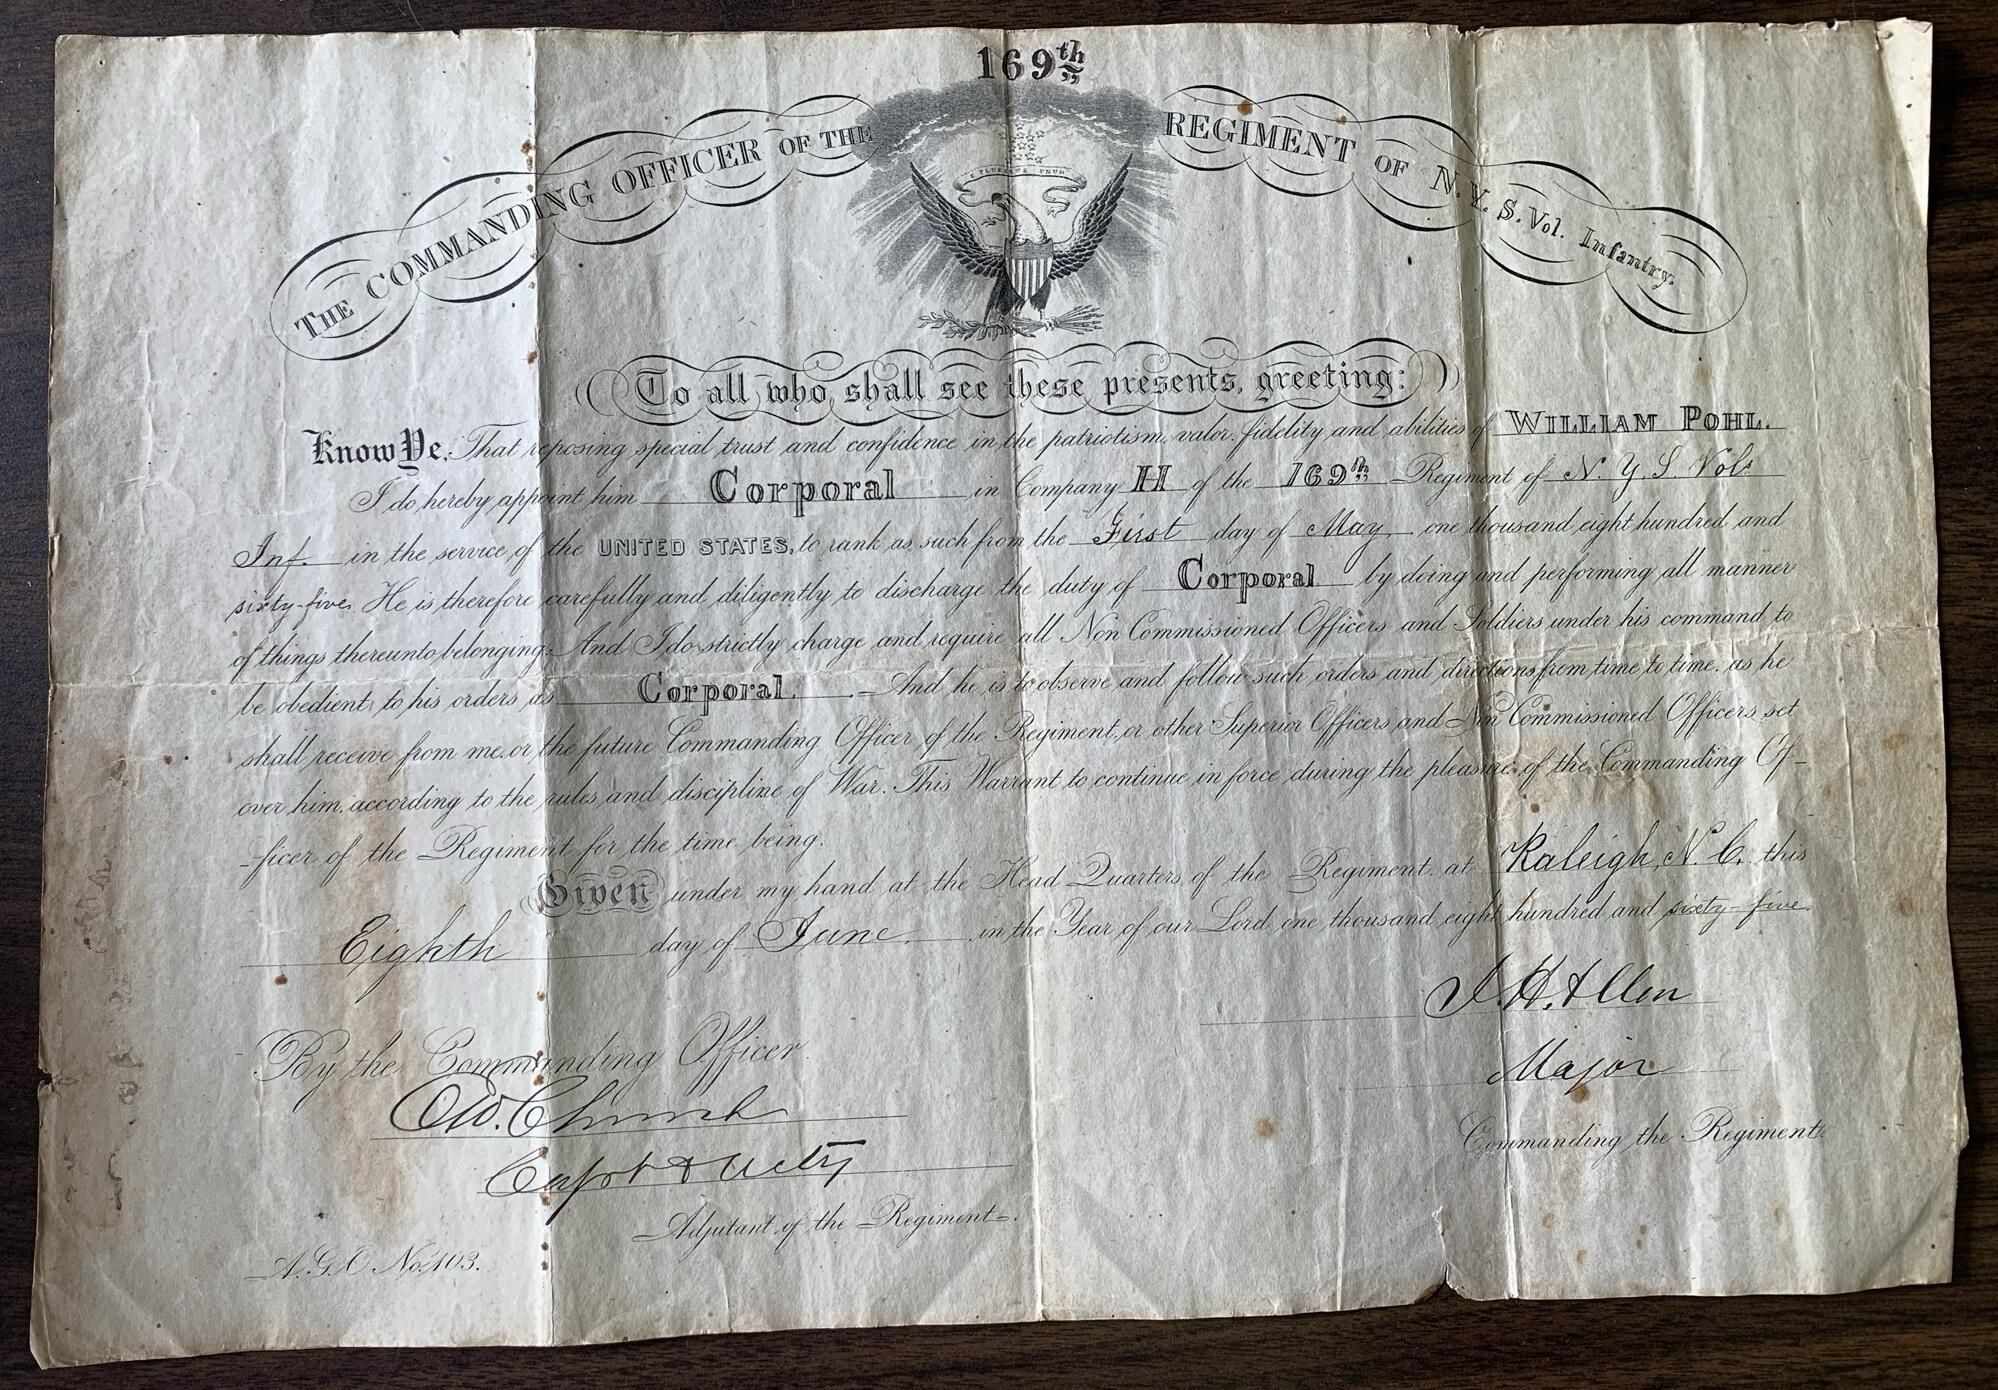 169th
THE COMMANDING OFFICER OF THE REGIMENT OF N.Y.S. Vol. Infantry.
E PLURIBUS UNUM
To all who shall see these presents, greeting:
Know Ye, That reposing special trust and confidence in the patriotism, valor, fidelity and abilities of WILLIAM POHL.
I do hereby appoint him Corporal in Company H of the 169th Regiment of N. Y. S. Vols
Inf. in the service of the UNITED STATES, to rank as such from the First day of May one thousand eight hundred and
sixty-five. He is therefore carefully and diligently to discharge the duty of Corporal by doing and performing all manner
of things thereunto belonging. And I do strictly charge and require all Non Commissioned Officers and Soldiers under his command to
be obedient to his orders as Corporal. And he is to observe and follow such orders and directions from time to time, as he
shall receive from me, or the future Commanding Officer of the Regiment, or other Superior Officers and Non Commissioned Officers set
over him, according to the rules and discipline of War. This Warrant to continue in force during the pleasure of the Commanding Of-
-ficer of the Regiment for the time being.
Given under my hand at the Head Quarters of the Regiment at Raleigh, N. C. this
Eighth day of June in the Year of our Lord one thousand eight hundred and sixty-five
J. H. Allen
Major
Commanding the Regiment.
By the Commanding Officer
Ed. Church
Capt & Actg
Adjutant of the Regiment.
A.G.O. No. 103.